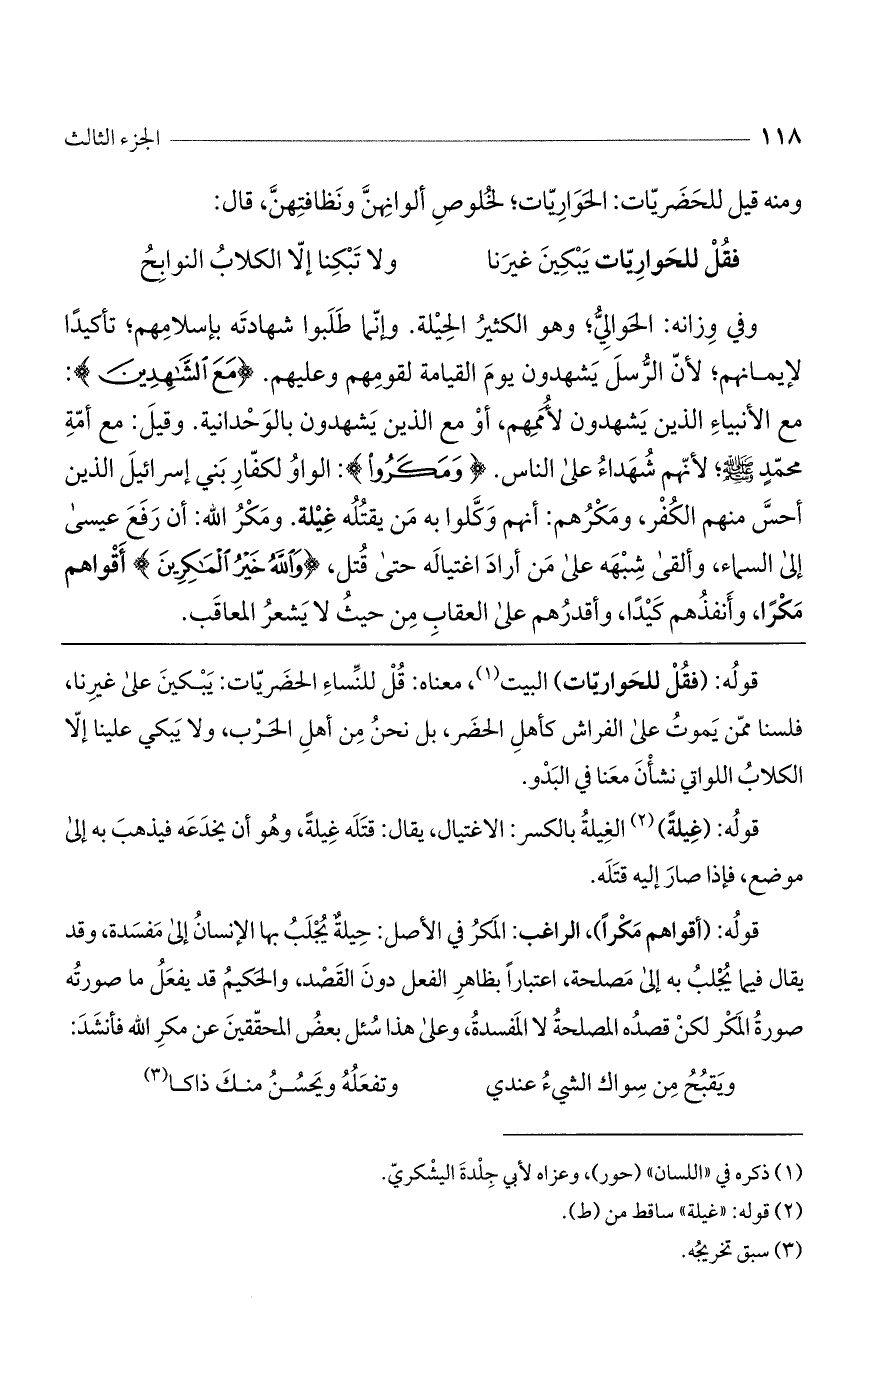 ١١٨ الجزء الثالث
ومنه قيل للحَضَريّات: الحَوَارِيّات؛ لخُلوصِ ألوانِهنَّ ونَظافتِهنَّ، قال:
فقُلْ للحَوارِيّات يَبْكِينَ غيرَنا ولا تَبْكِنا إلّا الكلابُ النوابِحُ
وفي وِزانه: الحَواليُّ؛ وهو الكثيرُ الحِيْلة. وإنّما طَلَبوا شهادتَه بإسلامِهم؛ تأكيدًا
لإيمانهم؛ لأنّ الرُّسلَ يَشهدون يومَ القيامة لقومِهم وعليهم. ﴿مَعَ ٱلشَّـٰهِدِينَ﴾:
مع الأنبياءِ الذين يَشهدون لأُممِهم، أوْ مع الذين يَشهدون بالوَحْدانية. وقيلَ: مع أمّةِ
محمّدٍ ﷺ؛ لأنّهم شُهَداءُ علىٰ الناس. ﴿وَمَكَرُواْ﴾: الواوُ لكفّارِ بَني إسرائيلَ الذين
أحسَّ منهم الكُفْر، ومَكْرُهم: أنهم وَكَّلوا به مَن يقتُلُه غِيْلة. ومَكْرُ الله: أن رَفَعَ عيسىٰ
إلىٰ السماء، وألقىٰ شِبْهَه علىٰ مَن أرادَ اغتيالَه حتىٰ قُتل، ﴿وَٱللَّهُ خَيْرُ ٱلْمَـٰكِرِينَ﴾ أَقْواهم
مَكْرًا، وأَنفذُهم كَيْدًا، وأقدرُهم علىٰ العقابِ مِن حيثُ لا يَشعرُ المعاقَب.
قولُه: (فقُلْ للحَواريّات) البيت(١)، معناه: قُل للنِّساءِ الحضَريّات: يَبْكينَ علىٰ غيرِنا،
فلسنا ممّن يَموتُ علىٰ الفراش كأهلِ الحضَر، بل نحنُ مِن أهلِ الحَرْب، ولا يَبكي علينا إلّا
الكلابُ اللواتي نشأْنَ معَنا في البَدْو.
قولُه: (غِيلةً)(٢) الغِيلةُ بالكسر: الاغتيال، يقال: قتَلَه غِيلةً، وهُو أن يخدَعَه فيذهبَ به إلىٰ
موضع، فإذا صارَ إليه قتَلَه.
قولُه: (أقواهم مَكْراً)، الراغب: المَكرُ في الأصل: حِيلةٌ يُجْلَبُ بها الإنسانُ إلىٰ مَفسَدة، وقد
يقال فيما يُجْلبُ به إلىٰ مَصلحة، اعتباراً بظاهرِ الفعل دونَ القَصْد، والحَكيمُ قد يفعَلُ ما صورتُه
صورةُ المَكْر لكنْ قصدُه المصلحةُ لا المَفسدةُ، وعلىٰ هذا سُئل بعضُ المحقّقينَ عن مكرِ الله فأنشَدَ:
ويَقبُحُ مِن سِواك الشيءُ عندي وتفعَلُهُ ويَحسُنُ منكَ ذاكا(٣)
(١) ذكره في «اللسان» (حور)، وعزاه لأبي جِلْدةَ اليشْكريّ.
(٢) قوله: «غيلة» ساقط من (ط).
(٣) سبق تخريجُه.